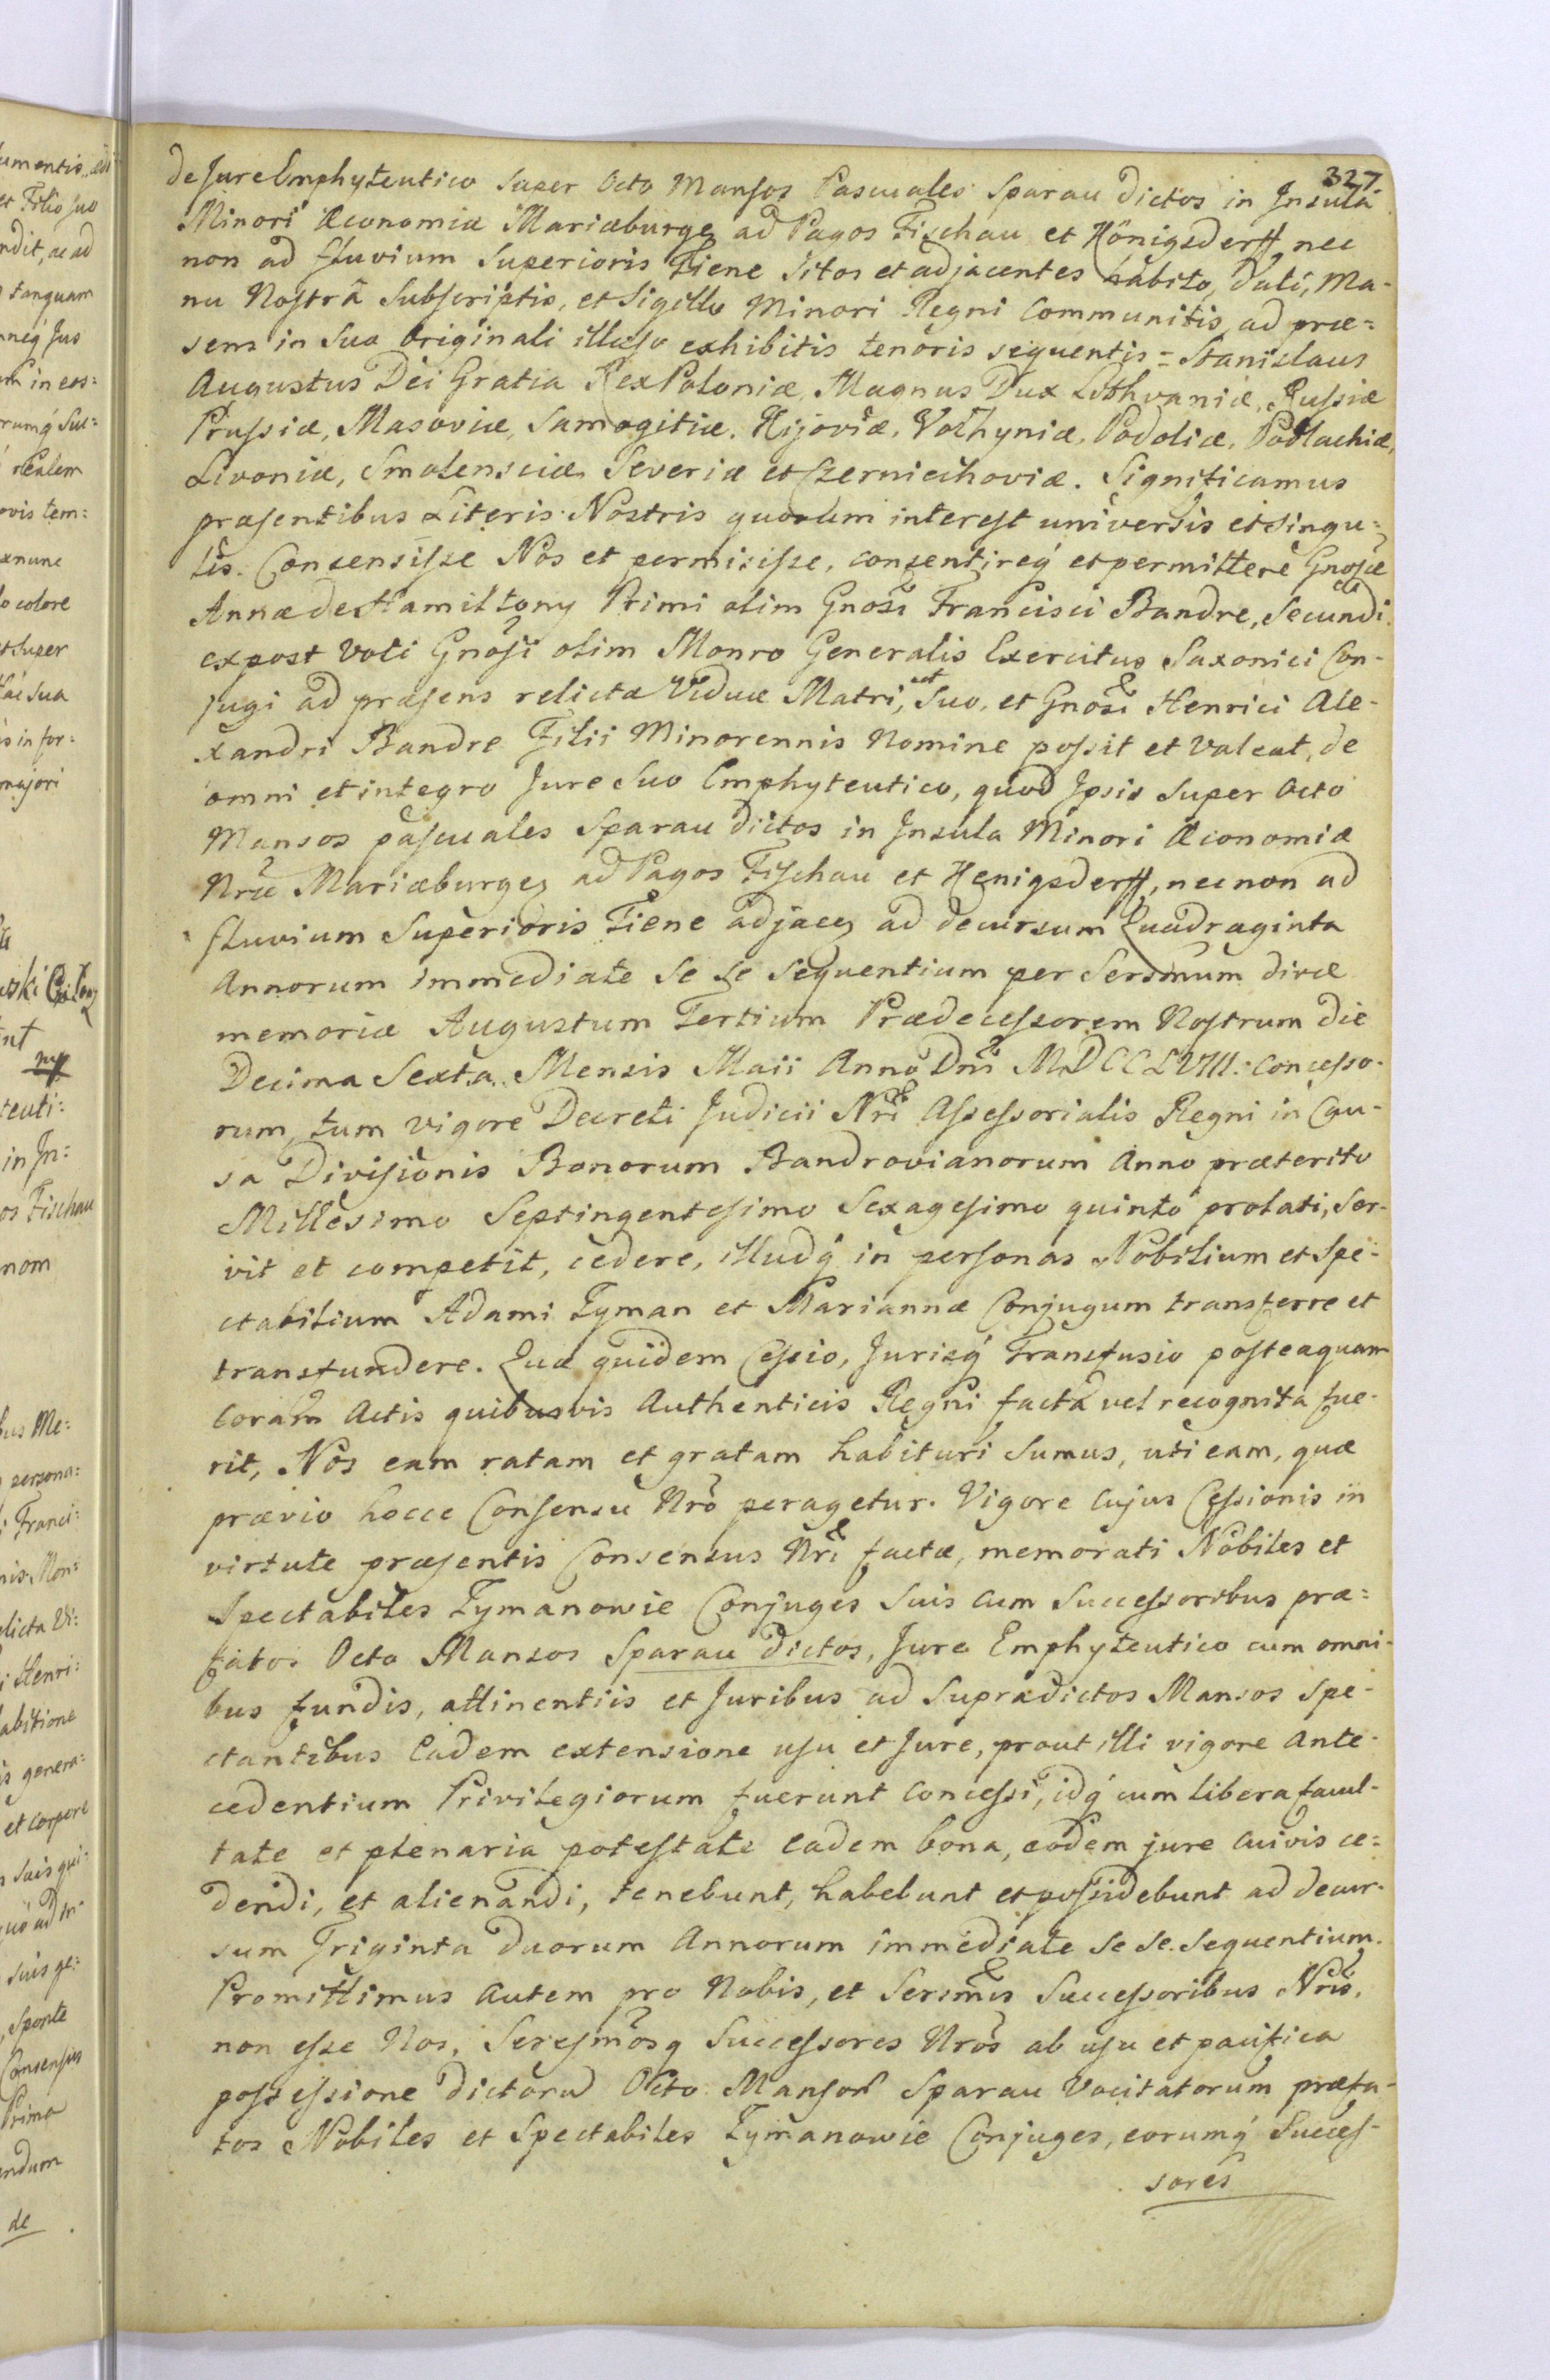 327.
de Jure Emphyteutico super Octo Mansos Pascuales Sparau dictos in Insula
Minori Æconomiæ Mariæburgen ad Pagos Fischau et Hönigsderff, nec
non ad fluvium Superioris Tiene sitos et adjacentes habito, dati, Ma-
nu Nostrâ Subscriptis, et Sigillo Minori Regni Communitis, ad præ=
sens in Suo Originali illæso exhibitis tenoris sequentis = Stanislaus
Augustus Dei Gratia Rex Poloniæ, Magnus Dux Lithvaniæ, Russiæ
Prussiæ, Masoviæ, Samogitiæ, Kijoviæ, Volhyniæ, Podoliæ, Podlachiæ,
Livoniæ, Smolensciæ, Severiæ et Czerniechoviæ. Significamus
præsentibus Literis Nostris quorum interest universis et singu=
lis. Consensisse Nos et permisisse, consentireq́ et permittere Gnosæ
Annæ de Hamiltony Primi olim Gnosi Francisci Bandre, Secundi
expost Voti Gnosi olim Monro Generalis Exercitus Saxonici Con-
jugi ad præsens relictæ Viduæ Matri, ut Suo, et Gnosi Henrici Ale-
xandri Bandre Filii Minorennis Nomine possit et valeat, de
omni et integro Jure Suo Emphyteutico, quod Ipsis Super Octo
Mansos pascuales Sparau dictos in Insula Minori Æconomiæ
Nræ Mariæburgen ad Pagos Fischau et Henigsderff, nec non ad
fluvium Superioris Tiene adjacen ad decursum Quadraginta
Annorum immediate se se sequentium per Sersmum divæ
memoriæ Augustum Tertium Prædecessorem Nostrum die
Decima Sexta Mensis Maii Anno Dni MDCCLVIII. Concesso-
rum, tum vigore Decreti Judicii Nri Assessorialis Regni in Cau-
sa Divisionis Bonorum Bandrovianorum Anno præterito
Millesimo Septingentesimo Sexagesimo quinto prolati, ser-
vit et competit, cedere, illudq́ in personas Nobilium et Spe-
ctabilium Adami Tyman et Mariannæ Conjugum transferre et
transfundere. Quæ quidem Cessio, Jurisq́ Transfusio posteaquam
Coram Actis quibusvis Authenticis Regni facta vel recognita fue-
rit, Nos eam ratam et gratam habituri sumus, uti eam, quæ
prævio hocce Consensu Nro peragetur. Vigore cujus Cessionis in
virtute præsentis Consensus Nri factæ, memorati Nobiles et
Spectabiles Tymanowie Conjuges Suis cum Successoribus præ=
fatos Octo Mansos Sparau dictos, Jure Emphyteutico cum omni-
bus fundis, attinentiis et Juribus ad Supradictos Mansos spe-
ctantibus Eadem extensione usu et Jure, prout illi vigore Ante-
cedentium Privilegiorum fuerunt Concessi, idq́ cum libera facul-
tate et plenaria potestate eadem bona, eodem jure cuivis ce=
dendi, et alienandi, tenebunt, habebunt et possidebunt ad decur-
sum Triginta duorum Annorum immediate se se sequentium.
Promittimus autem pro Nobis, et Sersmis Successoribus Nris,
non esse Nos, Seresmosq Successores Nros ab usu et pacifica
possessione dictoru Octo Mansor Sparau Vocitatorum præfa-
tos Nobiles et Spectabiles Tymanowie Conjuges, eorumq́ Succes-
sores